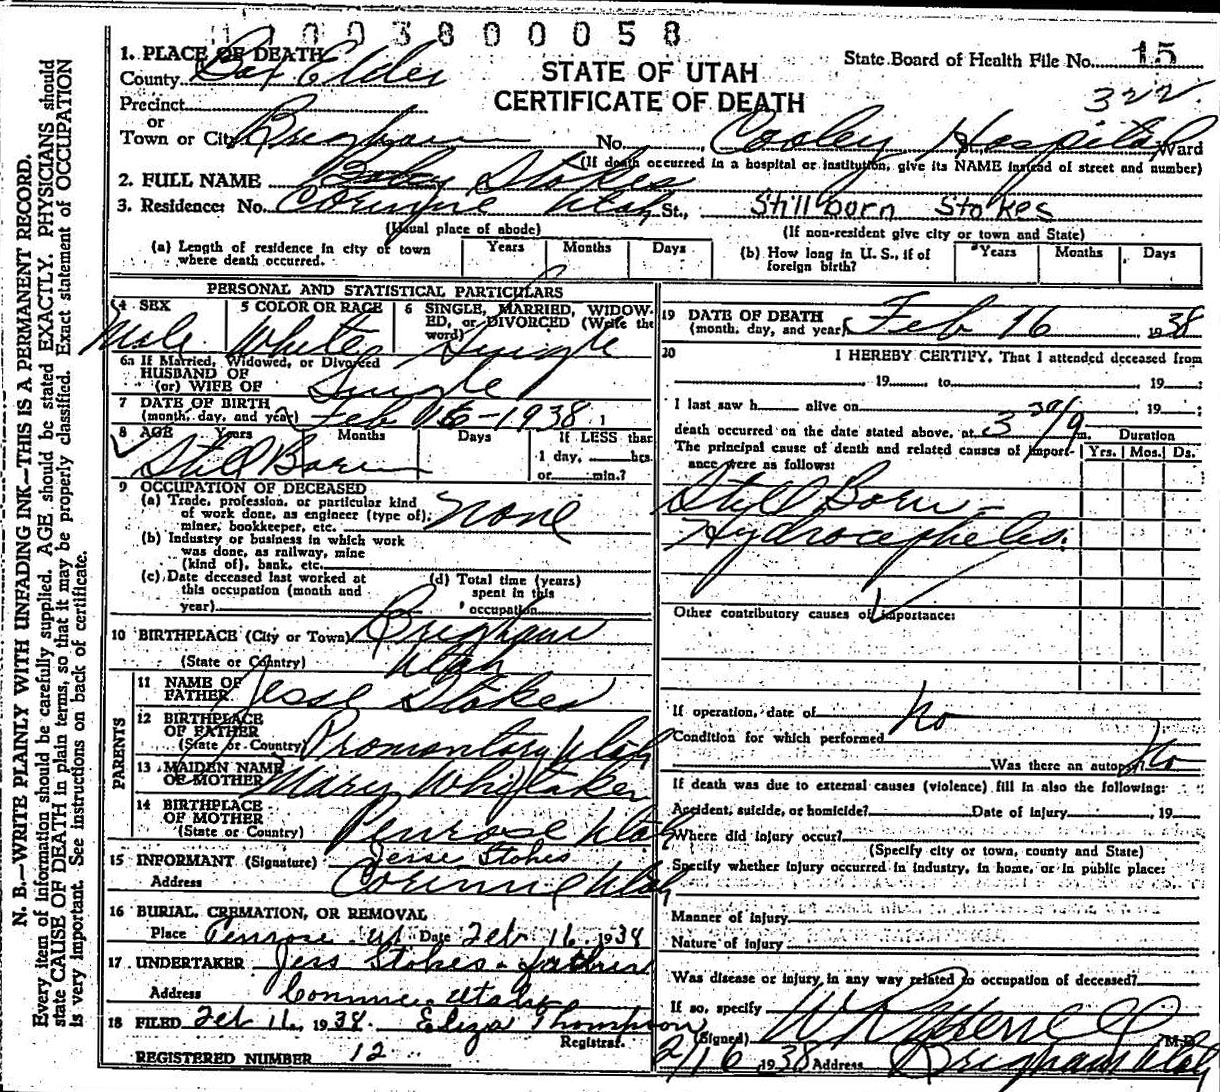 1003800058
1. PLACE OF DEATH
County Box Elder
State Board of Health File No. 15
STATE OF UTAH
CERTIFICATE OF DEATH
322
Precinct
or
Town or City Brigham No. Cooley Hospital St., Ward
(If death occurred in a hospital or institution, give its NAME instead of street and number)
2. FULL NAME Baby Stokes
3. Residence: No. Corinne Utah St., Still born Stokes
(Usual place of abode) (If non-resident give city or town and State)
(a) Length of residence in city of town where death occurred. Years Months Days
(b) How long in U. S., if of foreign birth? Years Months Days
PERSONAL AND STATISTICAL PARTICULARS
4 SEX Male
5 COLOR OR RACE White
6 SINGLE, MARRIED, WIDOWED, or DIVORCED (Write the word) Single
6a If Married, Widowed, or Divorced
HUSBAND OF
(or) WIFE OF Single
7 DATE OF BIRTH
(month, day, and year) Feb 16-1938
8 AGE Years Months Days If LESS than
1 day, hrs.
or min.?
Still Born
9 OCCUPATION OF DECEASED
(a) Trade, profession, or particular kind
of work done, as engineer (type of),
miner, bookkeeper, etc. none
(b) Industry or business in which work
was done, as railway, mine
(kind of), bank, etc.
(c) Date deceased last worked at
this occupation (month and
year)
(d) Total time (years)
spent in this
occupation
10 BIRTHPLACE (City or Town) Brigham
(State or Country) Utah
PARENTS
11 NAME OF
FATHER Jesse Stokes
12 BIRTHPLACE
OF FATHER
(State or Country) Promontory Utah
13 MAIDEN NAME
OF MOTHER Mary Whittaker
14 BIRTHPLACE
OF MOTHER
(State or Country) Penrose Utah
15 INFORMANT (Signature) Jesse Stokes
Address Corinne Utah
16 BURIAL, CREMATION, OR REMOVAL
Place Penrose Ut Date Feb 16 1938
17 UNDERTAKER Jess Stokes - father
Address Corinne Utah
18 FILED Feb 16, 1938. Eliza Thompson
Registrar.
REGISTERED NUMBER 12
19 DATE OF DEATH
(month, day, and year) Feb 16 1938
20 I HEREBY CERTIFY, That I attended deceased from
19 to 19 ;
I last saw h alive on 19 ;
death occurred on the date stated above, at 3 30 / m. Duration
The principal cause of death and related causes of importance were as follows: Yrs. Mos. Ds.
Still Born -
Hydrocepheles.
Other contributory causes of importance:
If operation, date of no
Condition for which performed
Was there an autopsy? No
If death was due to external causes (violence) fill in also the following:
Accident, suicide, or homicide? Date of injury , 19
Where did injury occur?
(Specify city or town, county and State)
Specify whether injury occurred in industry, in home, or in public place:
Manner of injury
Nature of injury
Was disease or injury, in any way related to occupation of deceased?
If so, specify
(Signed) M.D.
2/16 1938 Address Brigham Utah
N. B.—WRITE PLAINLY WITH UNFADING INK—THIS IS A PERMANENT RECORD.
Every item of information should be carefully supplied. AGE should be stated EXACTLY. PHYSICIANS should
state CAUSE OF DEATH in plain terms, so that it may be properly classified. Exact statement of OCCUPATION
is very important. See instructions on back of certificate.